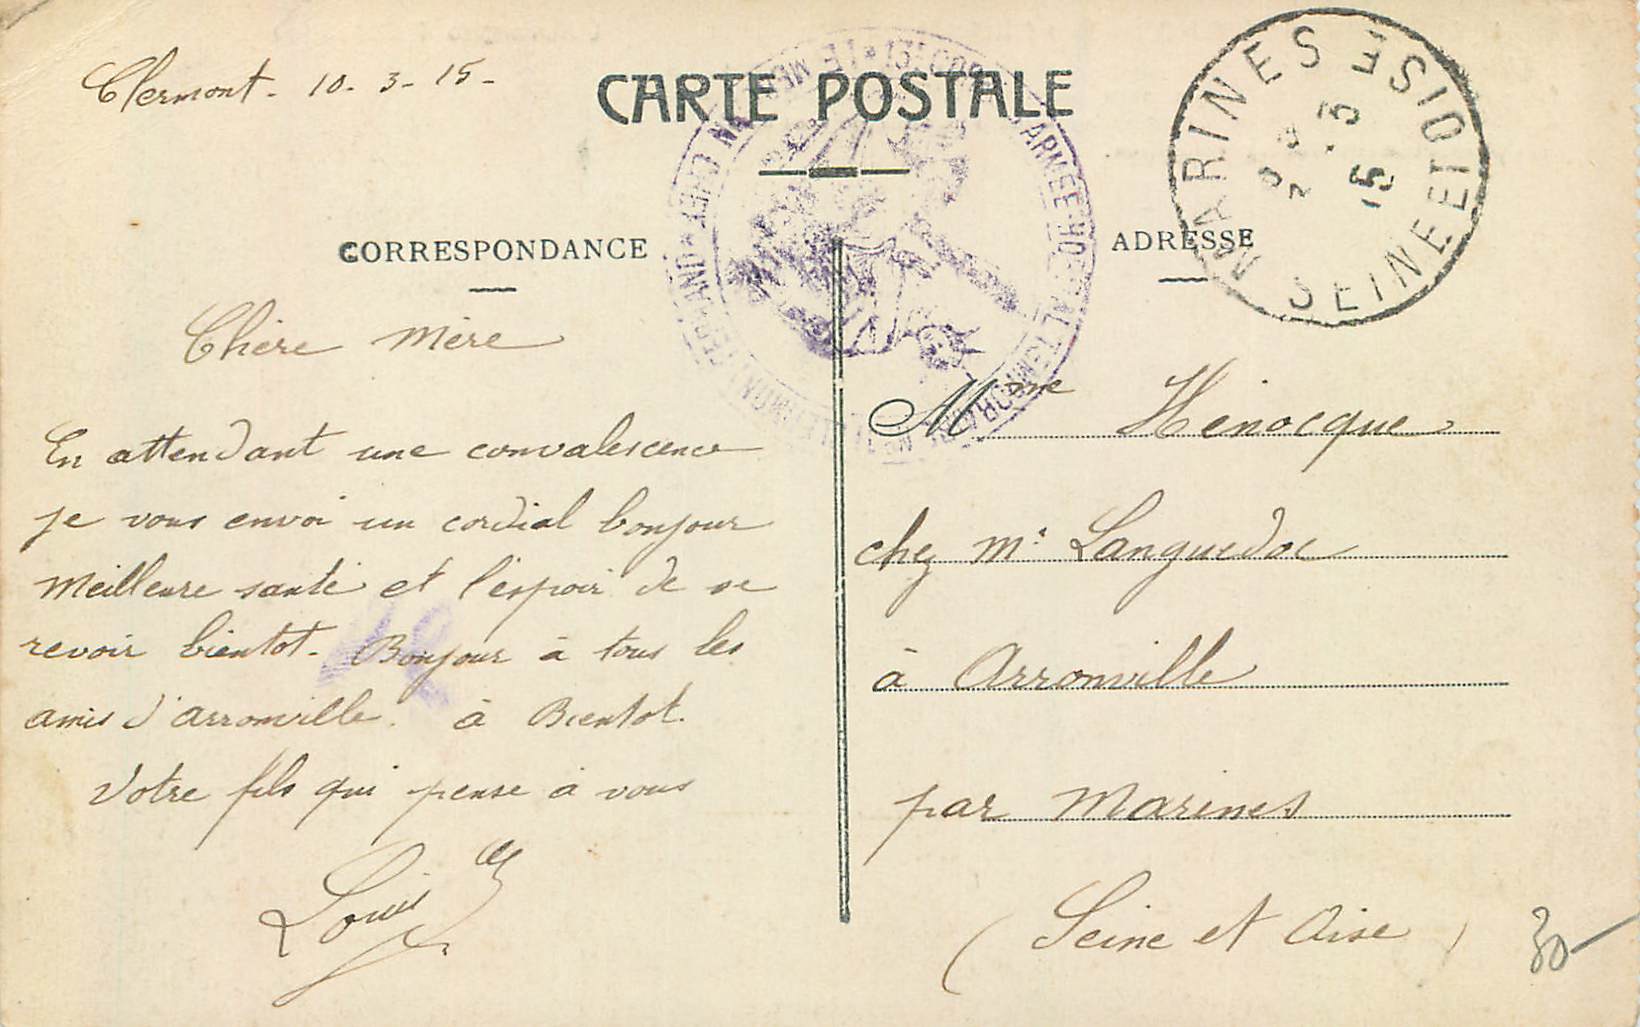 Clermont - 10 - 3 - 15 -
CARTE POSTALE
MARINES
SEINE ET OISE
3
15
CORRESPONDANCE
ADRESSE
Chère Mère
En attendant une convalescence
je vous envoi un cordial bonjour
Meilleure santé et l'espoir de se
revoir bientot - Bonjour à tous les
amis d'arronville. à Bientot.
Votre fils qui pense à vous
Louis
Mme Henocque
chez Mr Languedoc
à Arronville
par Marines
(Seine et Oise)
30